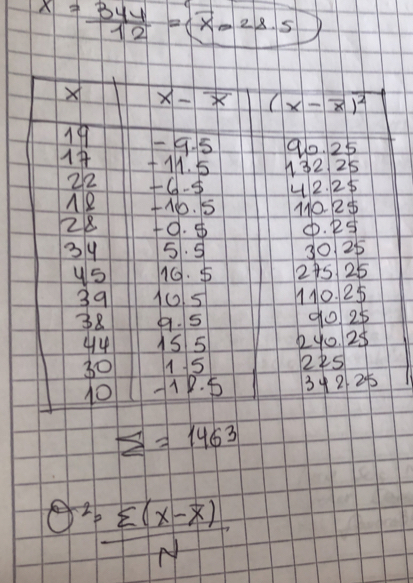 x = 344/12 = x̄ = 28.5
x | x - x̄ | (x - x̄)²
19 | -9.5 | 90.25
17 | -11.5 | 132.25
22 | -6.5 | 42.25
18 | -10.5 | 110.25
28 | -0.5 | 0.25
34 | 5.5 | 30.25
45 | 16.5 | 275.25
39 | 10.5 | 110.25
38 | 9.5 | 90.25
44 | 15.5 | 240.25
30 | 1.5 | 225
10 | -18.5 | 342.25
Σ = 1463
σ² = Σ(x - x̄)/N